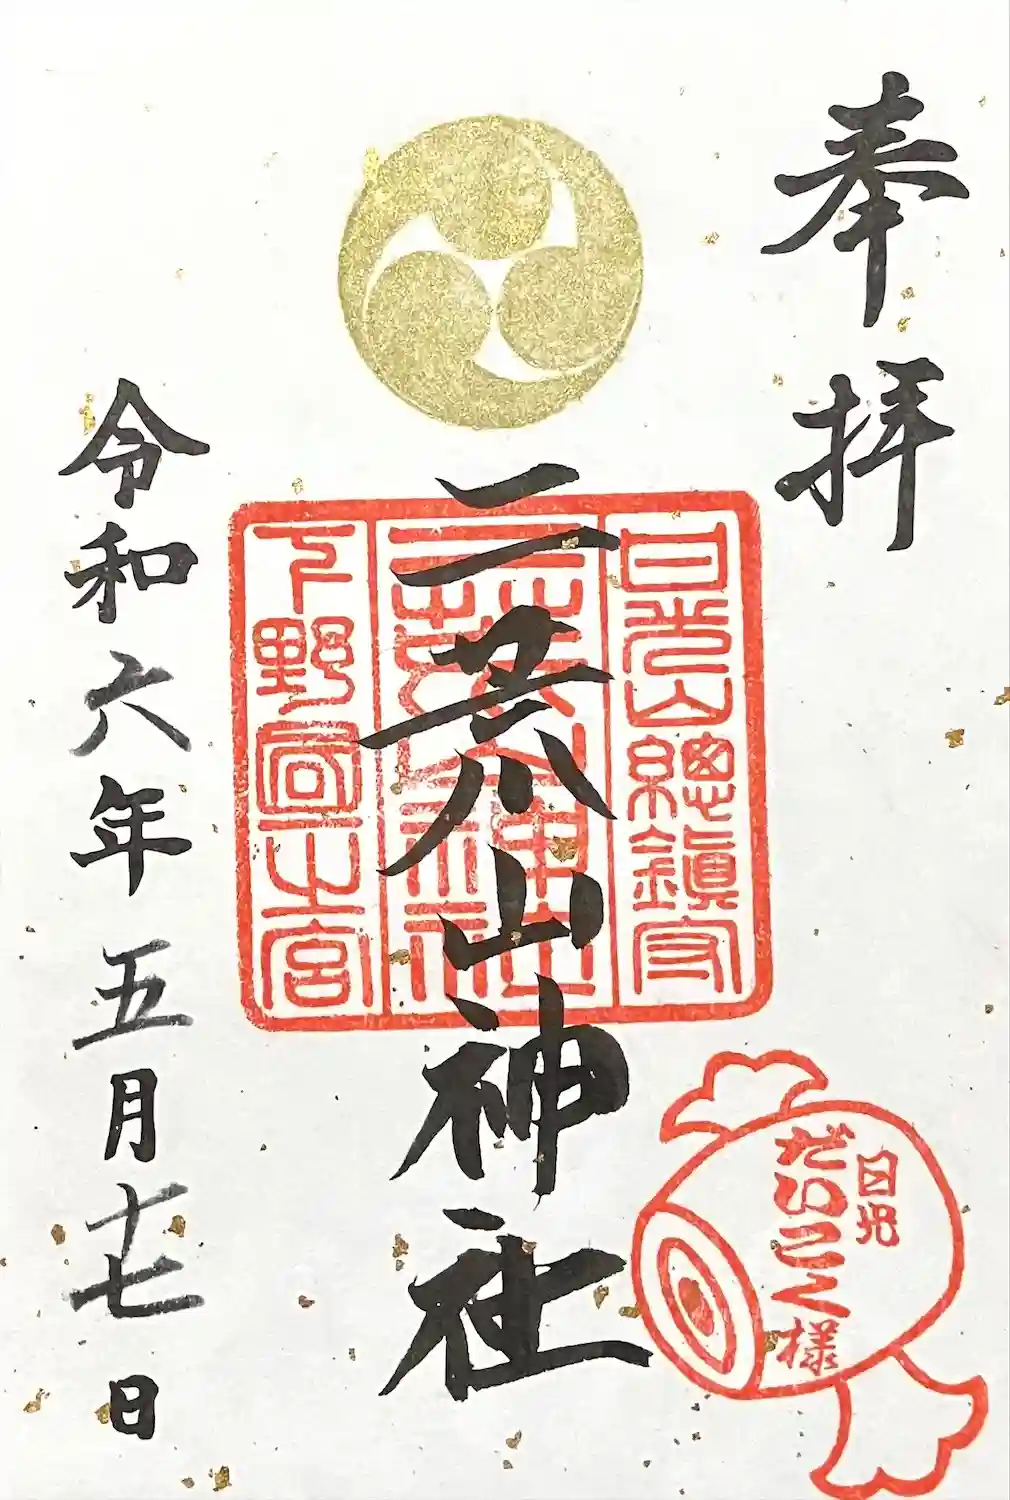 奉拝
日光山總鎮守
二荒山神社
下野國一之宮
二荒山神社
日光
だいこく様
令和六年五月十七日